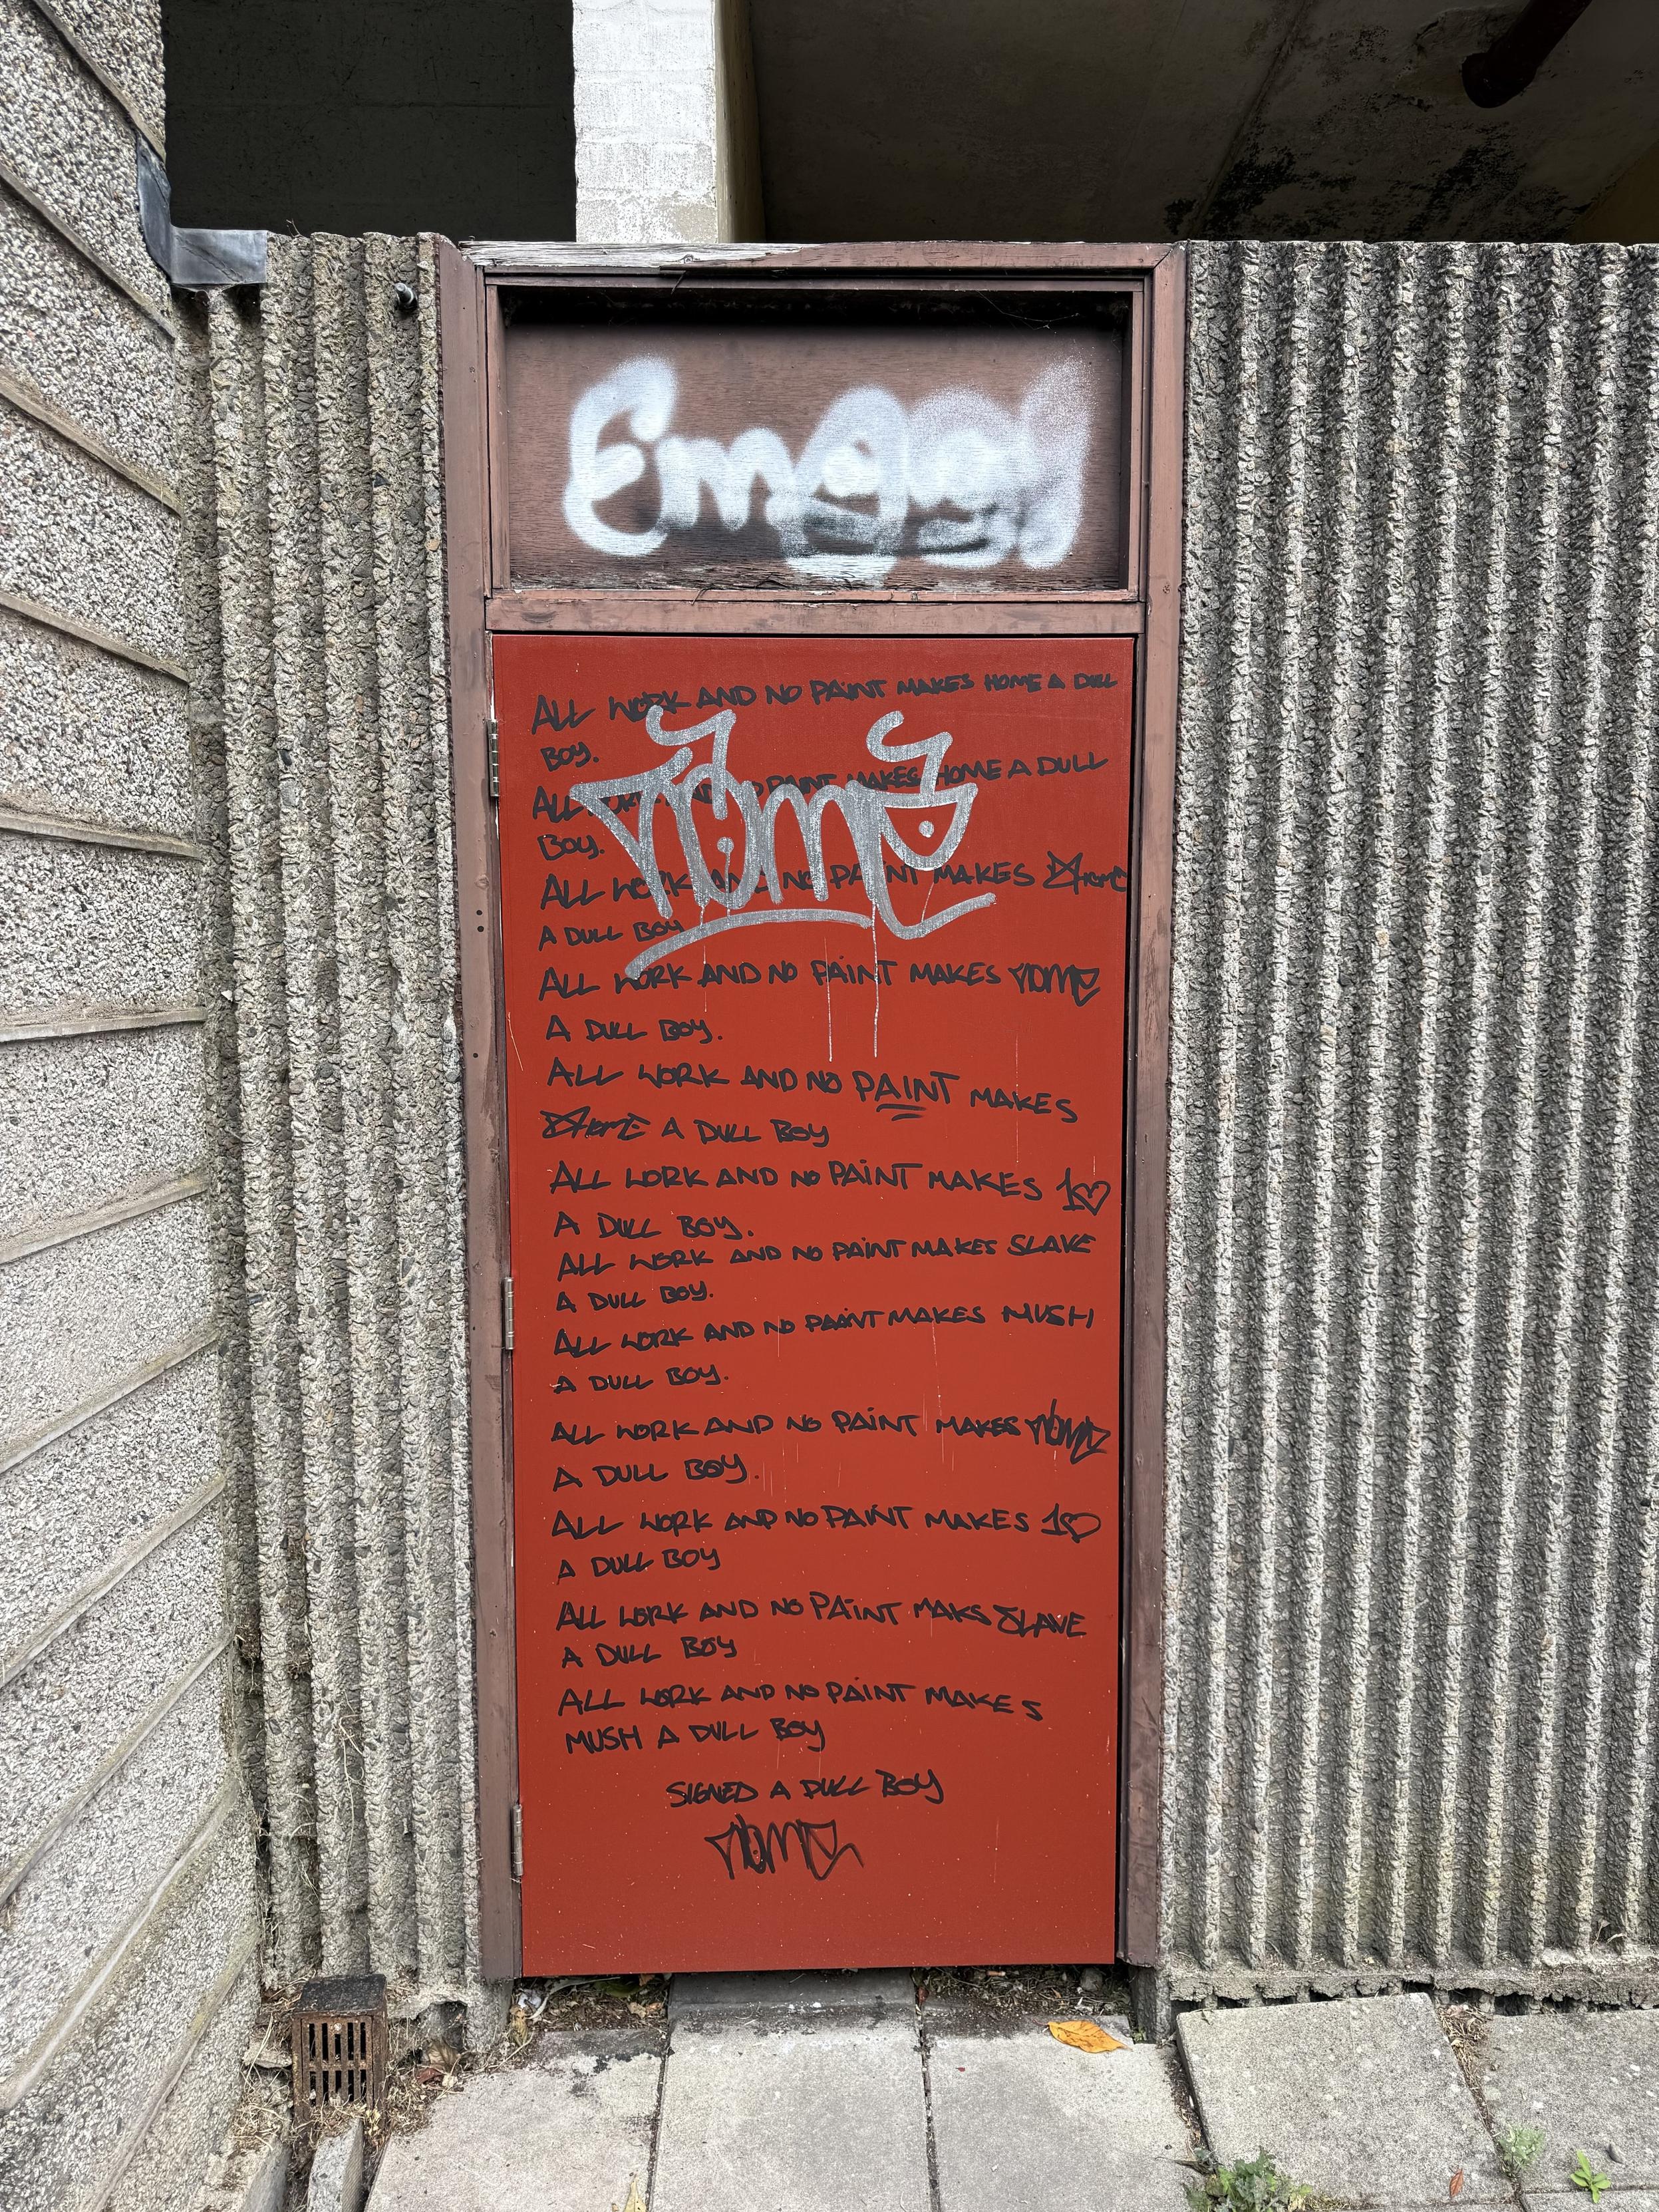 ALL WORK AND NO PAINT MAKES HOME A DULL
BOY.
ALL WORK AND NO PAINT MAKES HOME A DULL
BOY.
ALL WORK AND NO PAINT MAKES
A DULL BOY
ALL WORK AND NO PAINT MAKES NOME
A DULL BOY.
ALL WORK AND NO PAINT MAKES
A DULL BOY
ALL WORK AND NO PAINT MAKES 1♡
A DULL BOY.
ALL WORK AND NO PAINT MAKES SLAVE
A DULL BOY.
ALL WORK AND NO PAINT MAKES MUSH
A DULL BOY.
ALL WORK AND NO PAINT MAKES NOME
A DULL BOY.
ALL WORK AND NO PAINT MAKES 1♡
A DULL BOY
ALL WORK AND NO PAINT MAKS SLAVE
A DULL BOY
ALL WORK AND NO PAINT MAKES
MUSH A DULL BOY
SIGNED A DULL BOY
NOME